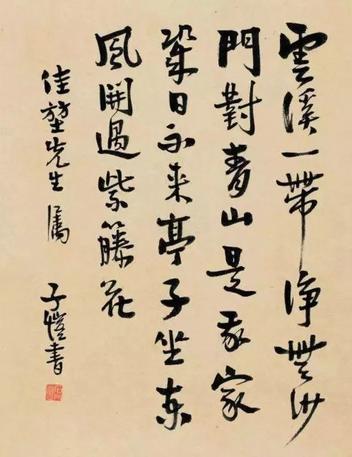 雲溪一帶淨無沙
門對青山是我家
幾日不来亭子坐東
風開過紫藤花
佳先生属
子愷書